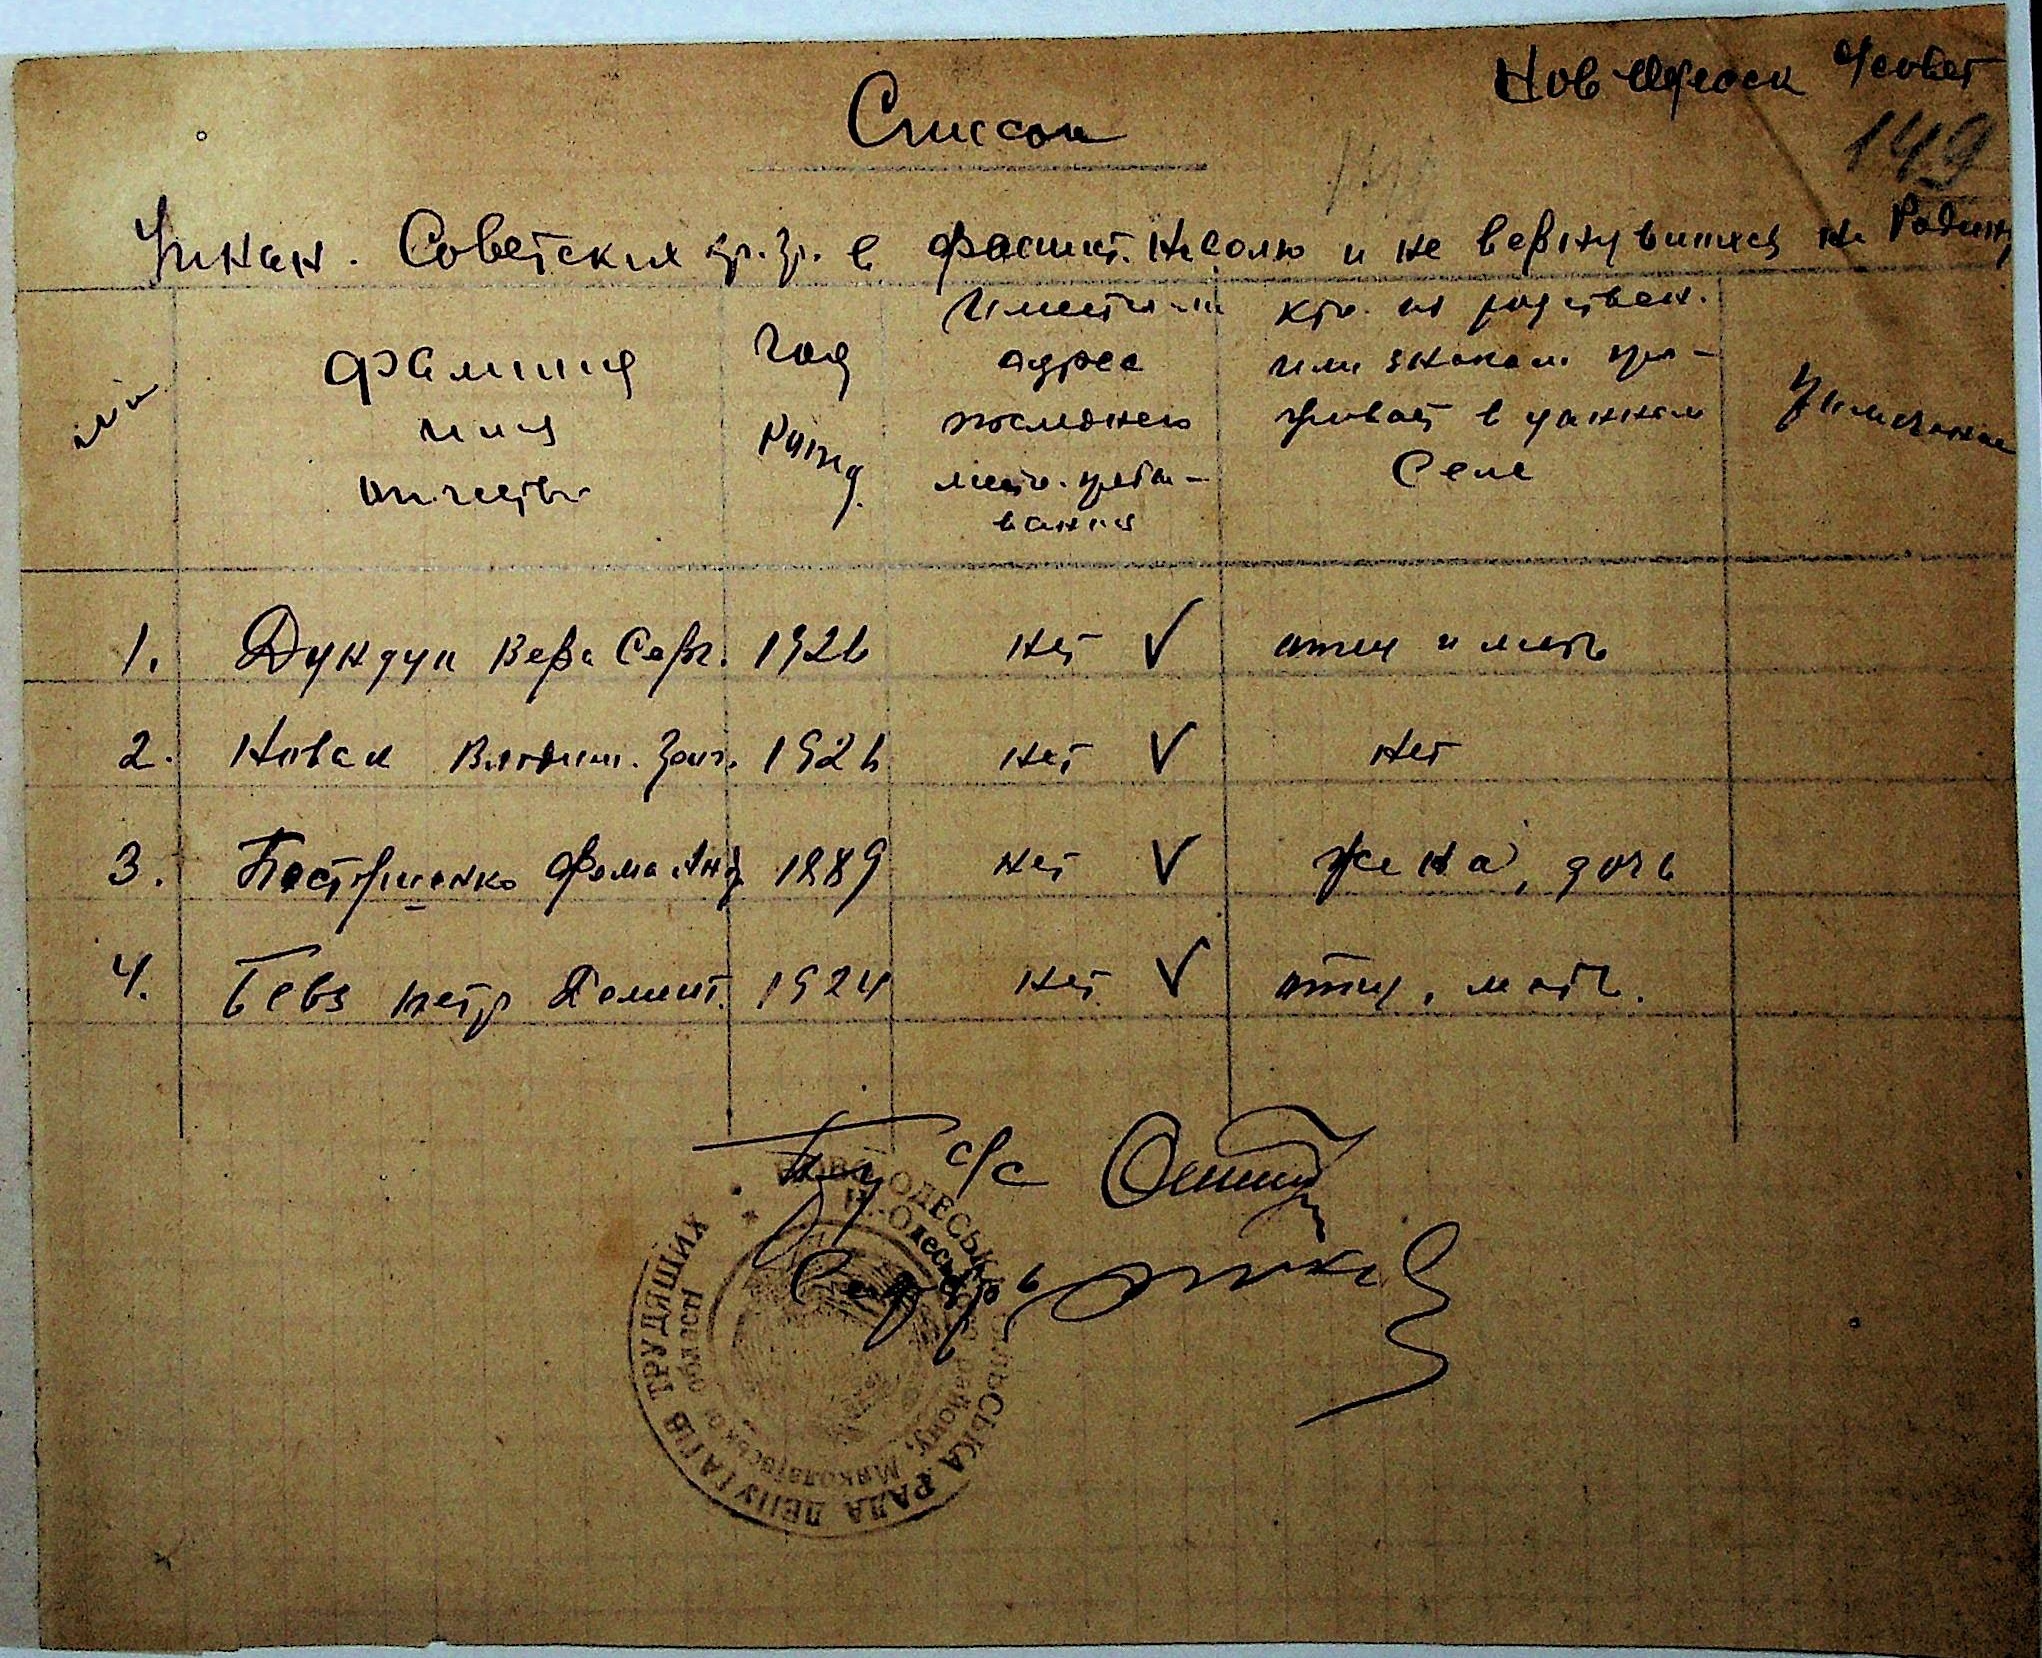 Нов Одеск с/совет
149
Список
Угнан. Советских гр. гр. в фашист. неволю и не вернувшихся на Родину
№№
Фамилия
имя
отчество
Год
рожд.
Имеется ли
адрес
последнего
место. пребы-
вания
кто из родствен.
или знаком. про-
живает в данном
селе
Примечание
1. Дундук Вера Серг. 1926 нет ✓ отец и мать
2. Новак Владим. Григ. 1926 нет ✓ нет
3. Пастушенко Фома Анд 1889 нет ✓ жена, дочь
4. Бевз Петр Демент. 1924 нет ✓ отец, мать.
Пред с/с
Секретарь
НОВО-ОДЕСЬКА СІЛЬСЬКА РАДА ДЕПУТАТІВ ТРУДЯЩИХ
Н.-Одеського району, Миколаївської області